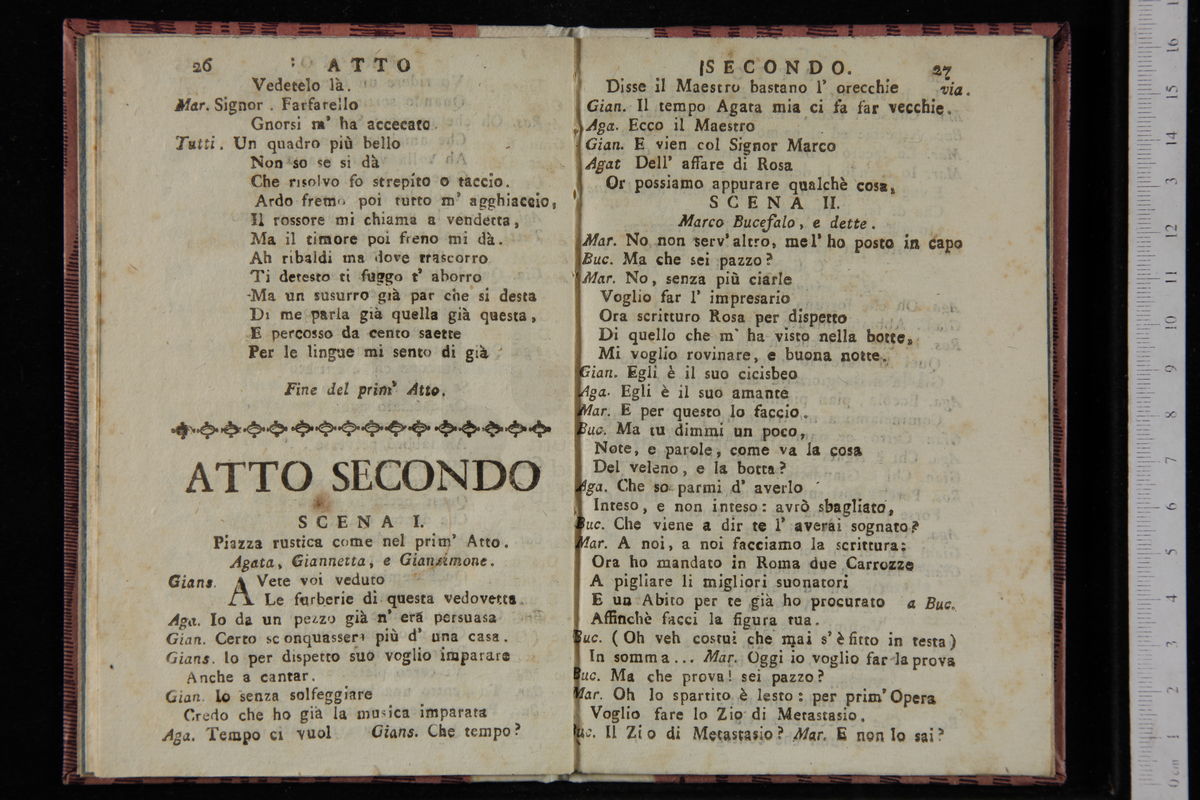 26 ATTO
Vedetelo là.
Mar. Signor . Farfarello
Gnorsì m' ha accecato
Tutti. Un quadro più bello
Non so se si dà
Che risolvo fo strepito o taccio.
Ardo fremo poi tutto m' agghiaccio,
Il rossore mi chiama a vendetta,
Ma il timore poi freno mi dà.
Ah ribaldi ma dove trascorro
Ti detesto ti fuggo t' aborro
Ma un susurro già par che si desta
Di me parla già quella già questa,
E percosso da cento saette
Per le lingue mi sento di già
Fine del prim' Atto.
ATTO SECONDO
SCENA I.
Piazza rustica come nel prim' Atto.
Agata, Giannetta, e Giansimone.
Gians. AVete voi veduto
Le furberie di questa vedovetta.
Aga. Io da un pezzo già n' era persuasa
Gian. Certo sconquasserà più d' una casa.
Gians. Io per dispetto suo voglio imparare
Anche a cantar.
Gian. Io senza solfeggiare
Credo che ho già la musica imparata
Aga. Tempo ci vuol Gians. Che tempo?
SECONDO. 27
Disse il Maestro bastano l' orecchie via.
Gian. Il tempo Agata mia ci fa far vecchie.
Aga. Ecco il Maestro
Gian. E vien col Signor Marco
Agat Dell' affare di Rosa
Or possiamo appurare qualchè cosa,
SCENA II.
Marco Bucefalo, e dette.
Mar. No non serv' altro, mel' ho posto in capo
Buc. Ma che sei pazzo?
Mar. No, senza più ciarle
Voglio far l' impresario
Ora scritturo Rosa per dispetto
Di quello che m' ha visto nella botte,
Mi voglio rovinare, e buona notte.
Gian. Egli è il suo cicisbeo
Aga. Egli è il suo amante
Mar. E per questo lo faccio.
Buc. Ma tu dimmi un poco,
Note, e parole, come va la cosa
Del veleno, e la botta?
Aga. Che so parmi d' averlo
Inteso, e non inteso: avrò sbagliato,
Buc. Che viene a dir te l' averai sognato?
Mar. A noi, a noi facciamo la scrittura:
Ora ho mandato in Roma due Carrozze
A pigliare li migliori suonatori
E un Abito per te già ho procurato a Buc.
Affinchè facci la figura tua.
Buc. (Oh veh costui che mai s' è fitto in testa)
In somma... Mar. Oggi io voglio far la prova
Buc. Ma che prova! sei pazzo?
Mar. Oh lo spartito è lesto: per prim' Opera
Voglio fare lo Zio di Metastasio.
Buc. Il Zio di Metastasio? Mar. E non lo sai?
16
15
14
13
12
11
10
9
8
7
6
5
4
3
2
1
0 cm